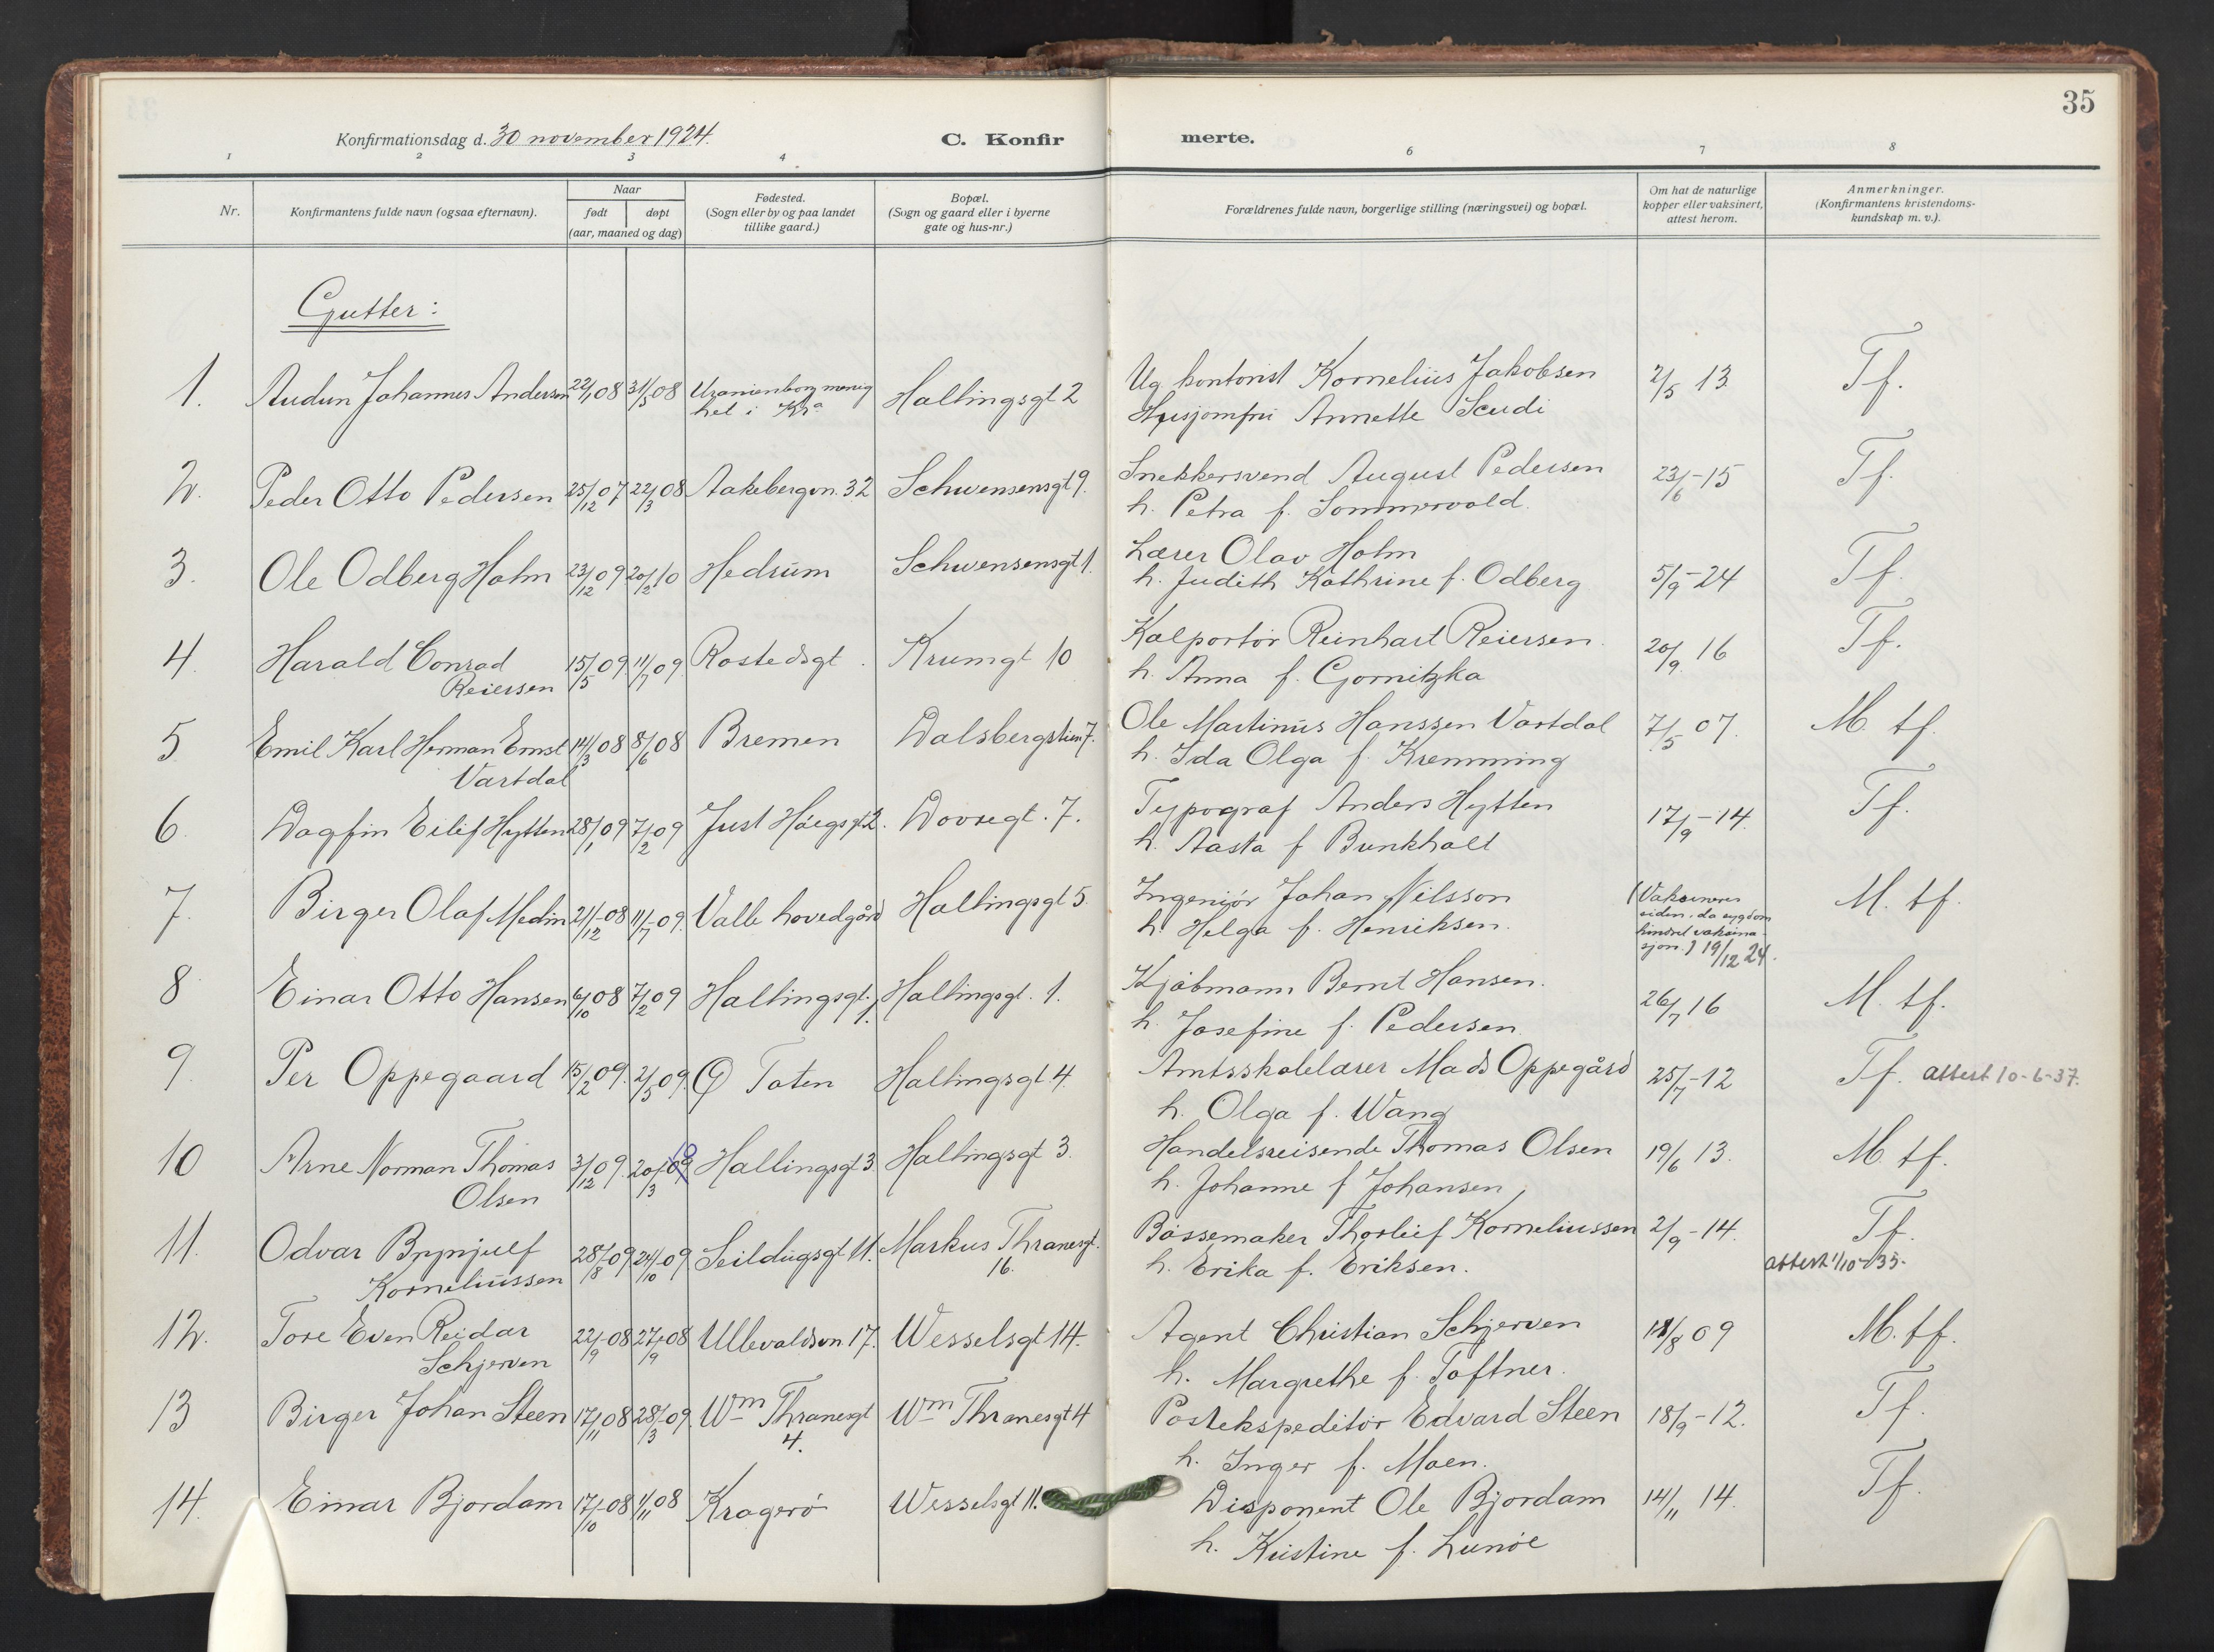 35
Konfirmationsdag d. 30 november 1924.
C. Konfir
merte.
1 2 3 4 6 7 8
Nr.
Konfirmantens fulde navn (ogsaa efternavn).
Naar
født døpt
(aar, maaned og dag)
Fødested.
(Sogn eller by og paa landet
tillike gaard.)
Bopæl.
(Sogn og gaard eller i byerne
gate og hus-nr.)
Forældrenes fulde navn, borgerlige stilling (næringsvei) og bopæl.
Om hat de naturlige
kopper eller vaksinert,
attest herom.
Anmerkninger.
(Konfirmantens kristendoms-
kundskap m. v.).
Gutter:
1. Audun Johannes Andersen 22/1 08 31/5 08 Uranienborg menig Hallingsgt 2 Ug. kontorist Kornelius Jakobsen 2/5 13 Tf.
het i Kra Husjomfru Annette Scudi
2. Peder Otto Pedersen 25/12 07 22/3 08 Aakebergvn. 32 Schwensensgt 9. Snekkersvend August Pedersen 23/6-15 Tf.
h. Petra f. Sommervold.
3. Ole Odberg Holm 23/12 09 20/2 10 Hedrum Schwensensgt 1. Lærer Olav Holm 5/9-24 Tf.
h. Judith Kathrine f. Odberg
4. Harald Conrad 15/5 09 11/7 09 Rostedsgt. Krumgt 10 Kolportør Reinhart Reiersen. 20/9 16 Tf.
Reiersen h. Anna f. Gornitzka
5 Emil Karl Herman Ernst 14/3 08 8/6 08 Bremen Dalsbergstien 7. Ole Martinus Hanssen Vartdal 7/5 07. M. tf.
Vartdal h. Ida Olga f. Kremming
6. Dagfin Eilif Hytten 28/1 09 7/2 09 Just Høegsgt 2. Dovregt. 7. Typograf Anders Hytten 17/9-14. Tf.
h. Aasta f Bunkholt
7. Birger Olaf Medin 21/12-08 11/7-09. Valle hovedgård Hallingsgt 5. Ingeniør Johan Nilsson (Vaksineres M. tf.
h. Helga f. Henriksen. siden, da sygdom
hindret vaksina-
sjon.) 19/12 24.
8 Einar Otto Hansen 6/10 08 7/2 09 Hallingsgt. 1. Hallingsgt. 1. Kjøbmann Bernt Hansen. 26/7 16 M. tf.
h. Josefine f. Pedersen
9. Per Oppegaard 15/2 09. 2/5 09. Ø Toten Hallingsgt 4. Amtsskolelærer Mads Oppegård 25/7-12 Tf. attest 10-6-37.
h. Olga f. Wang
10 Arne Norman Thomas 3/12 09. 20/3 09 10 Hallingsgt 3 Hallingsgt 3. Handelsreisende Thomas Olsen 19/6 13. M. tf.
Olsen h. Johanne f Johansen
11. Odvar Brynjulf 28/8-09 24/10-09 Seildugsgt 11. Markus Thranesgt. Bøssemaker Thorleif Korneliussen 2/9-14. Tf.
Korneliussen 16. h. Erika f. Eriksen. attest 1/10-35.
12. Tore Even Reidar 22/9-08 27/9-08 Ullevaldsvn 17. Wesselsgt 14. Agent Christian Schjerven 18/8 09 M. tf.
Schjerven h. Margrethe f. Toftner.
13 Birger Johan Steen 17/11 08 28/3-09. Wm Thranesgt Wm Thranesgt 4 Postekspeditør Edvard Steen 18/9-12. Tf.
4. h. Inger f. Moen.
14. Einar Bjordam 17/10-08 1/11 08 Kragerø Wesselsgt 11. Disponent Ole Bjordam 14/11 14. Tf.
h. Kristine f. Lunöe